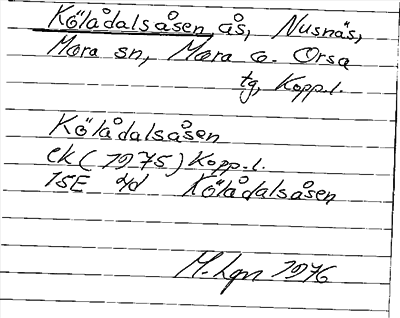 Kölådalsåsen, ås, Nusnäs,
Mora sn, Mora o. Orsa
tg, Kopp.l.
Kölådalsåsen
ek (1975) Kopp.l.
15E 4d Kölådalsåsen
M. Lgn 1976